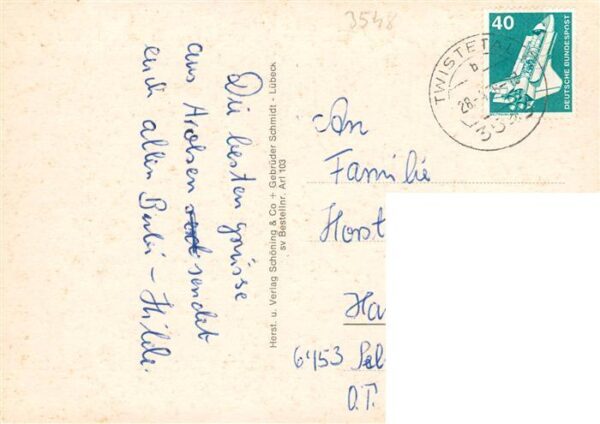 3548
40
DEUTSCHE BUNDESPOST
TWISTETAL
b
28.
35
Die besten grüsse
aus Arolsen sendet
euch allen Berbi-Hilde.
Herst. u. Verlag Schöning & Co + Gebrüder Schmidt - Lübeck
sv Bestellnr. Arl 103
An
Familie
Horst
Ha
6453 Sel
O.T.